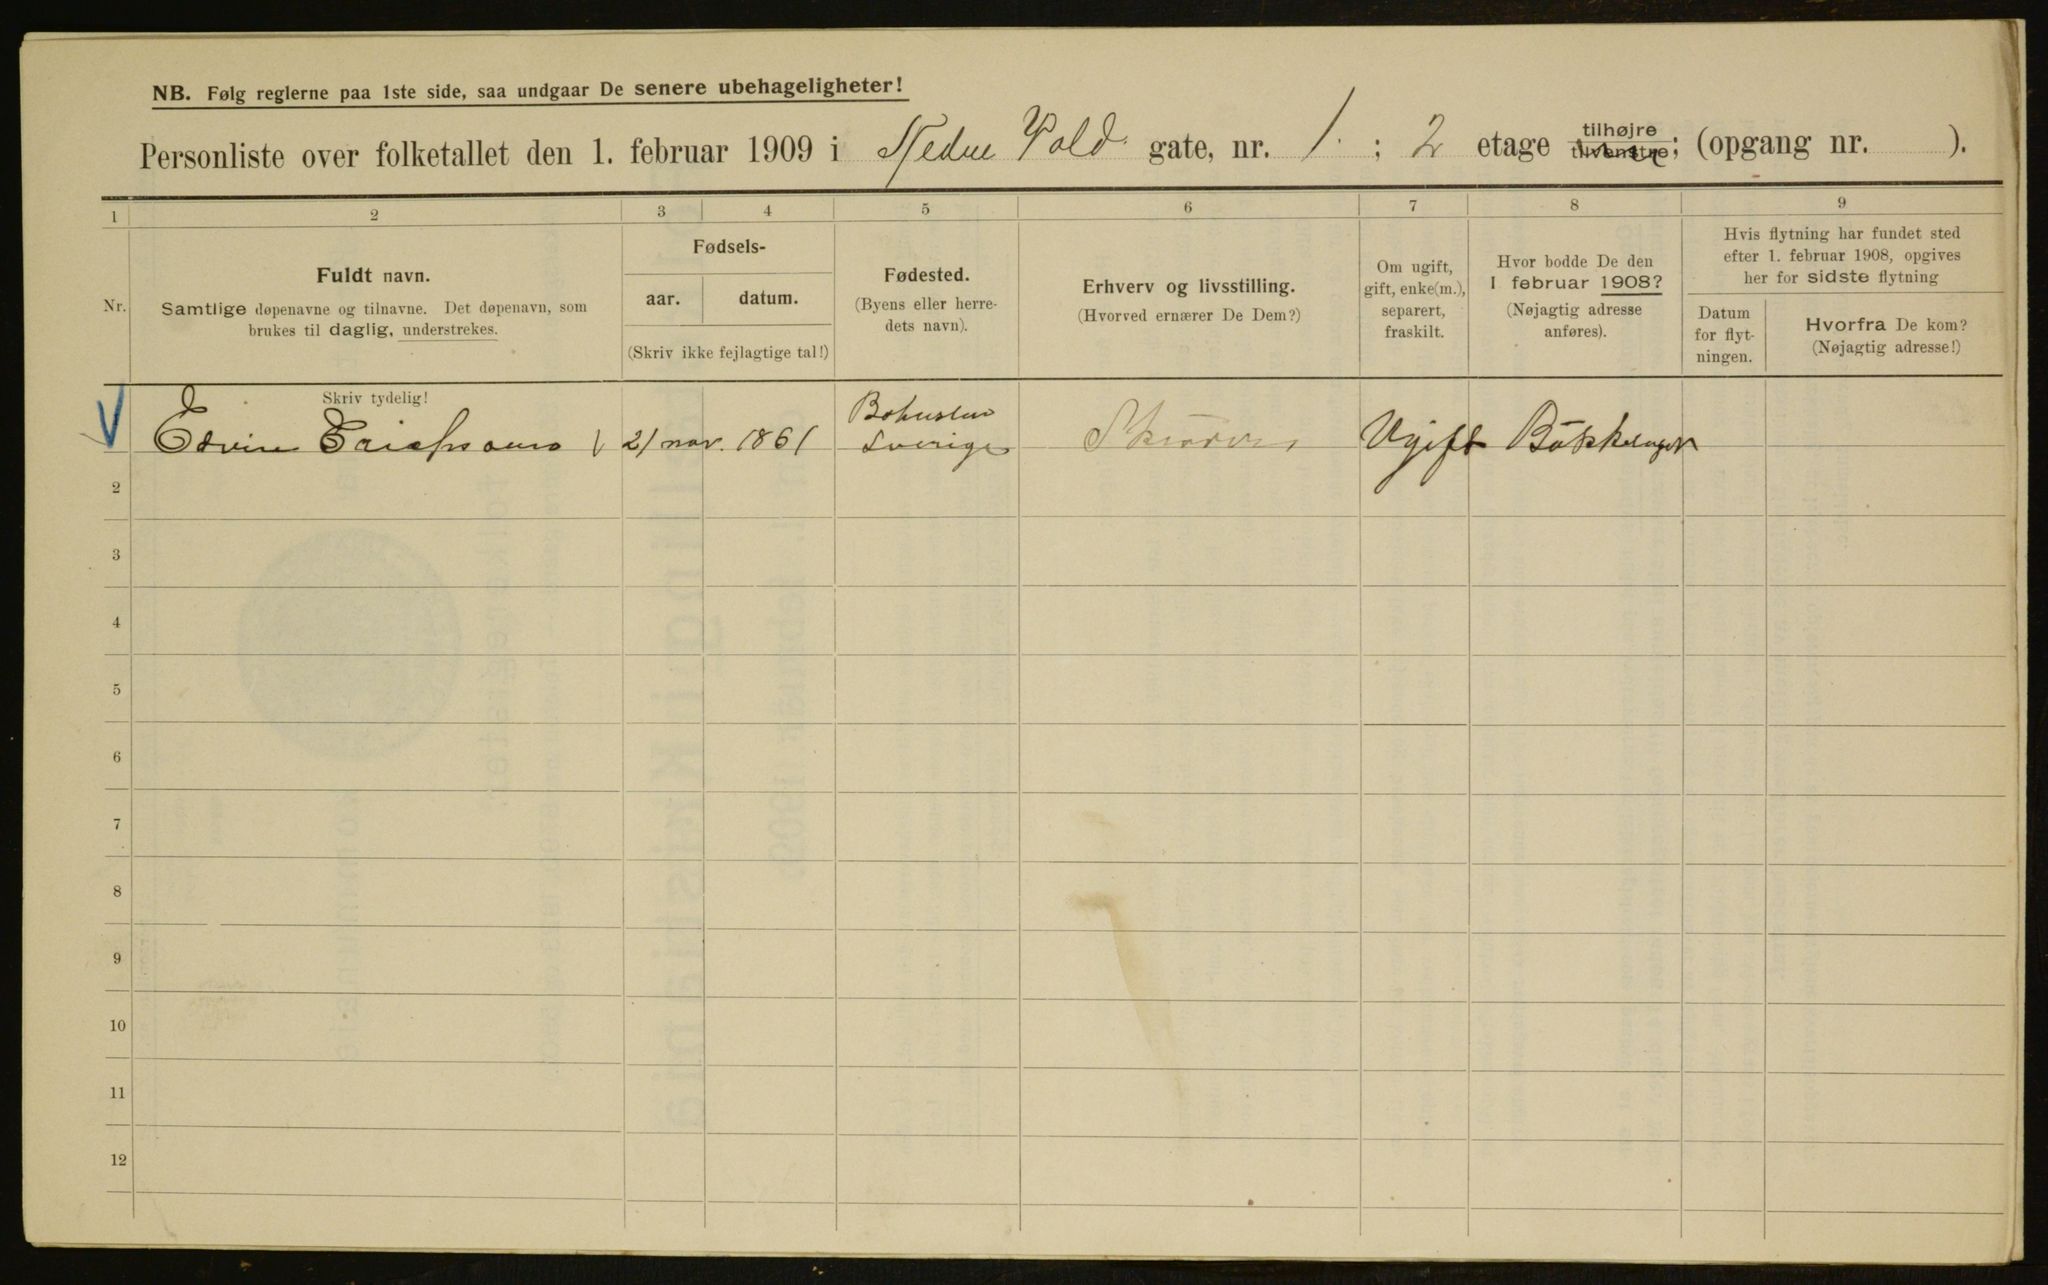 NB. Følg reglerne paa 1ste side, saa undgaar De senere ubehageligheter!
Personliste over folketallet den 1. februar 1909 i Nedre Vold gate, nr. 1. ; 2 etage tilhøjre tilvenstre; (opgang nr. ).
1 2 3 4 5 6 7 8 9
Nr.
Fuldt navn.
Samtlige døpenavne og tilnavne. Det døpenavn, som
brukes til daglig, understrekes.
Fødsels-
aar. datum.
(Skriv ikke fejlagtige tal!)
Fødested.
(Byens eller herre-
dets navn).
Erhverv og livsstilling.
(Hvorved ernærer De Dem?)
Om ugift,
gift, enke(m.),
separert,
fraskilt.
Hvor bodde De den
1 februar 1908?
(Nøjagtig adresse
anføres).
Hvis flytning har fundet sted
efter 1. februar 1908, opgives
her for sidste flytning
Datum
for flyt-
ningen.
Hvorfra De kom?
(Nøjagtig adresse!)
Skriv tydelig!
Bohuslen
Edvin 21 nov. 1861 Sverige Ugift
2
3
4
5
6
7
8
9
10
11
12